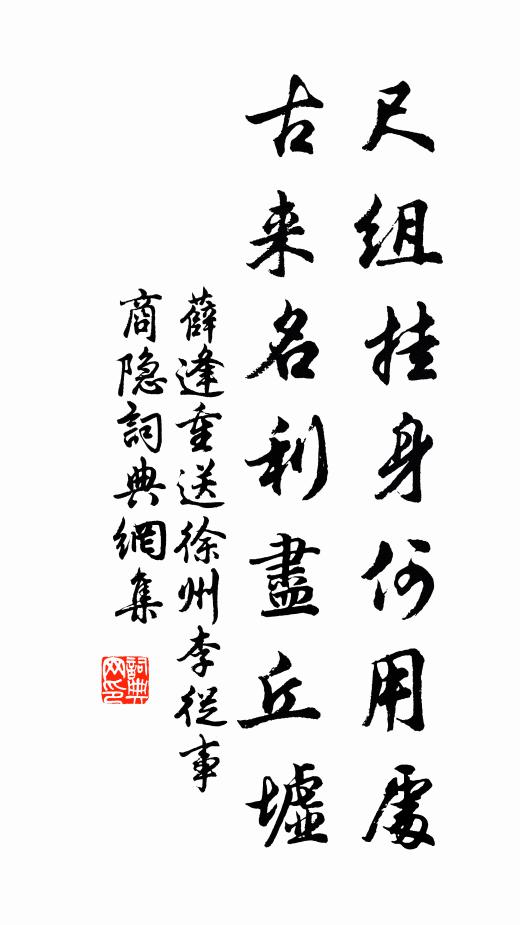 尺组挂身何用處
古来名利盡丘墟
薛逢重送徐州李從事
商隐詞典網集
詞典网印